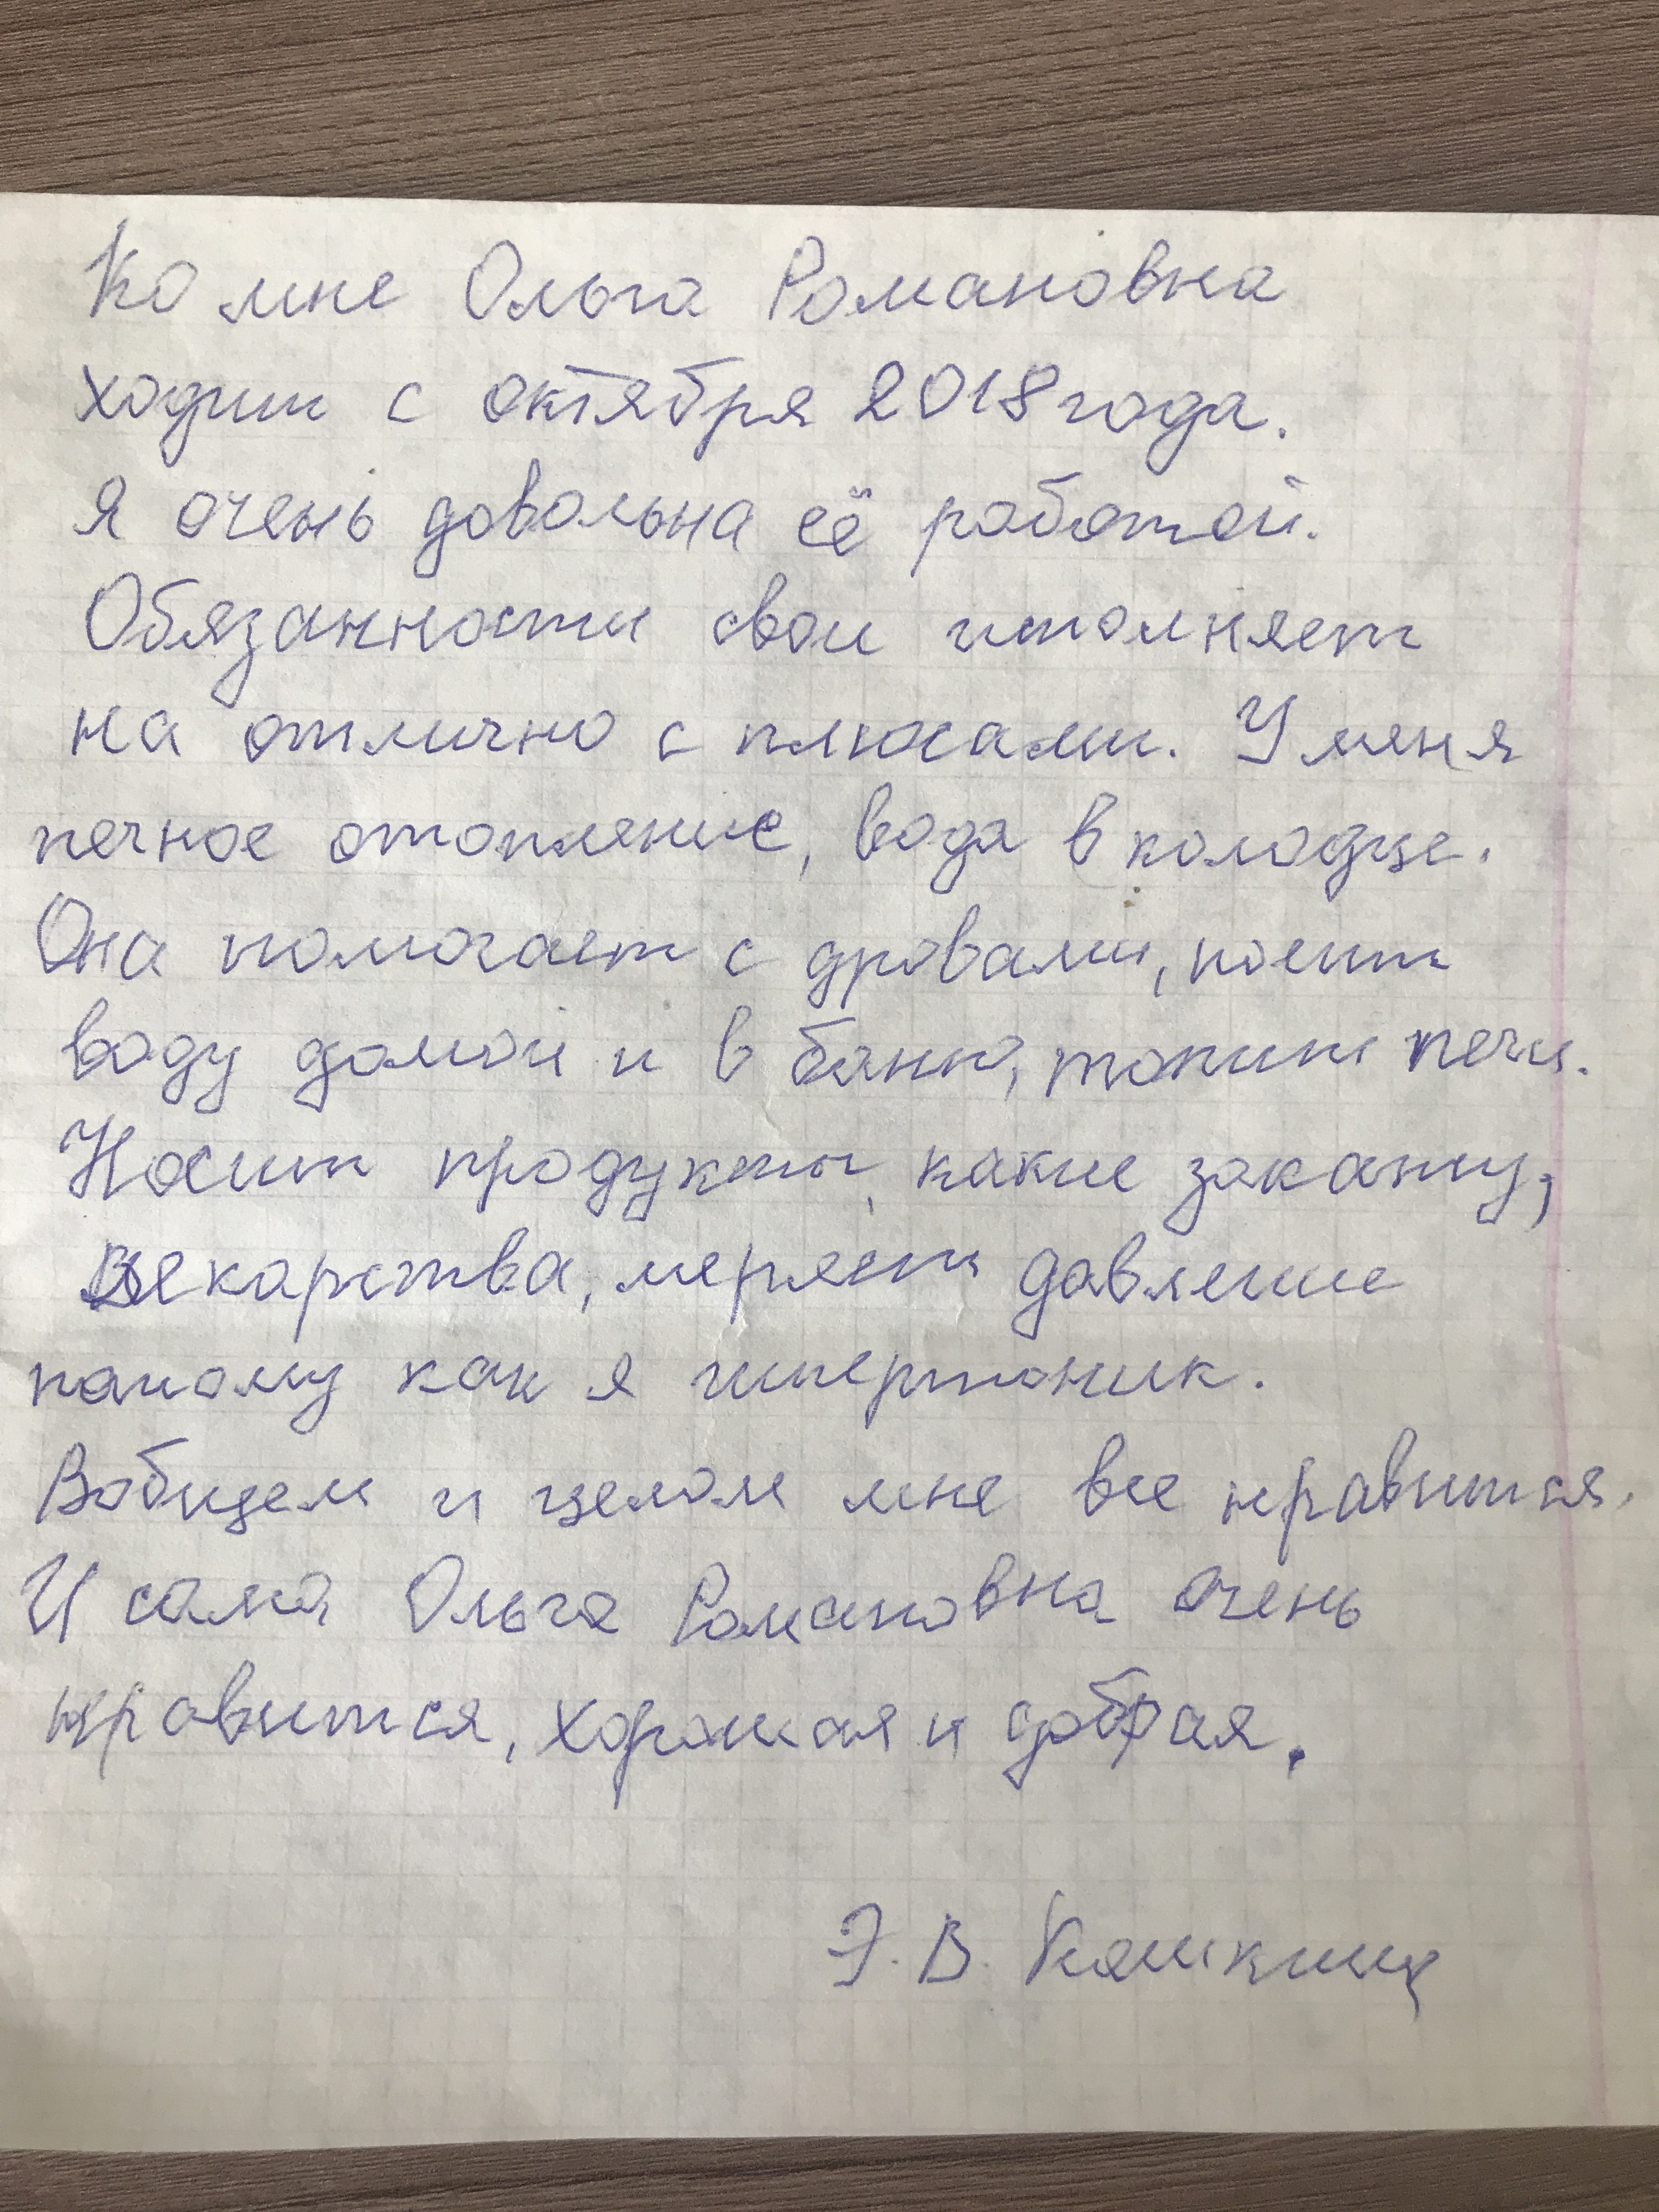 Ко мне Ольга Романовна
ходит с октября 2018 года.
Я очень довольна её работой.
Обязанности свои исполняет
на отлично с плюсами. У меня
печное отопление, вода в колодце.
Она помогает с дровами, носит
воду домой и в баню, топит печи.
Носит продукты, какие закажу,
лекарства, меряет давление
потому как я гипертоник.
Вобщем и целом мне все нравится.
И сама Ольга Романовна очень
нравится, хорошая и добрая.
Э. В.